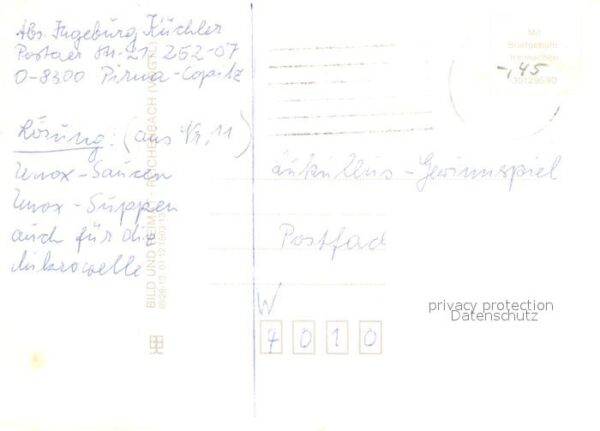 Abs. Ingeburg Küchler
Postaer Str. 21 252-07
O-8300 Pirna-Copitz
Lösung: (aus Nr. 11)
Unox-Saucen
Unox-Suppen
auch für die
Mikrowelle
BILD UND HEIMAT REICHENBACH (VOGTL)
Mit
Briefgebühr
freimachen
-,45
Lukullus-Gewinnspiel
Postfach
W
4010
privacy protection
Datenschutz